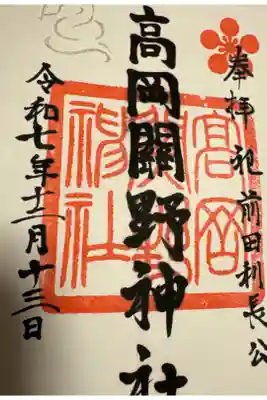 奉拝 祀前田利長公
高岡關野神社
令和七年十二月十三日